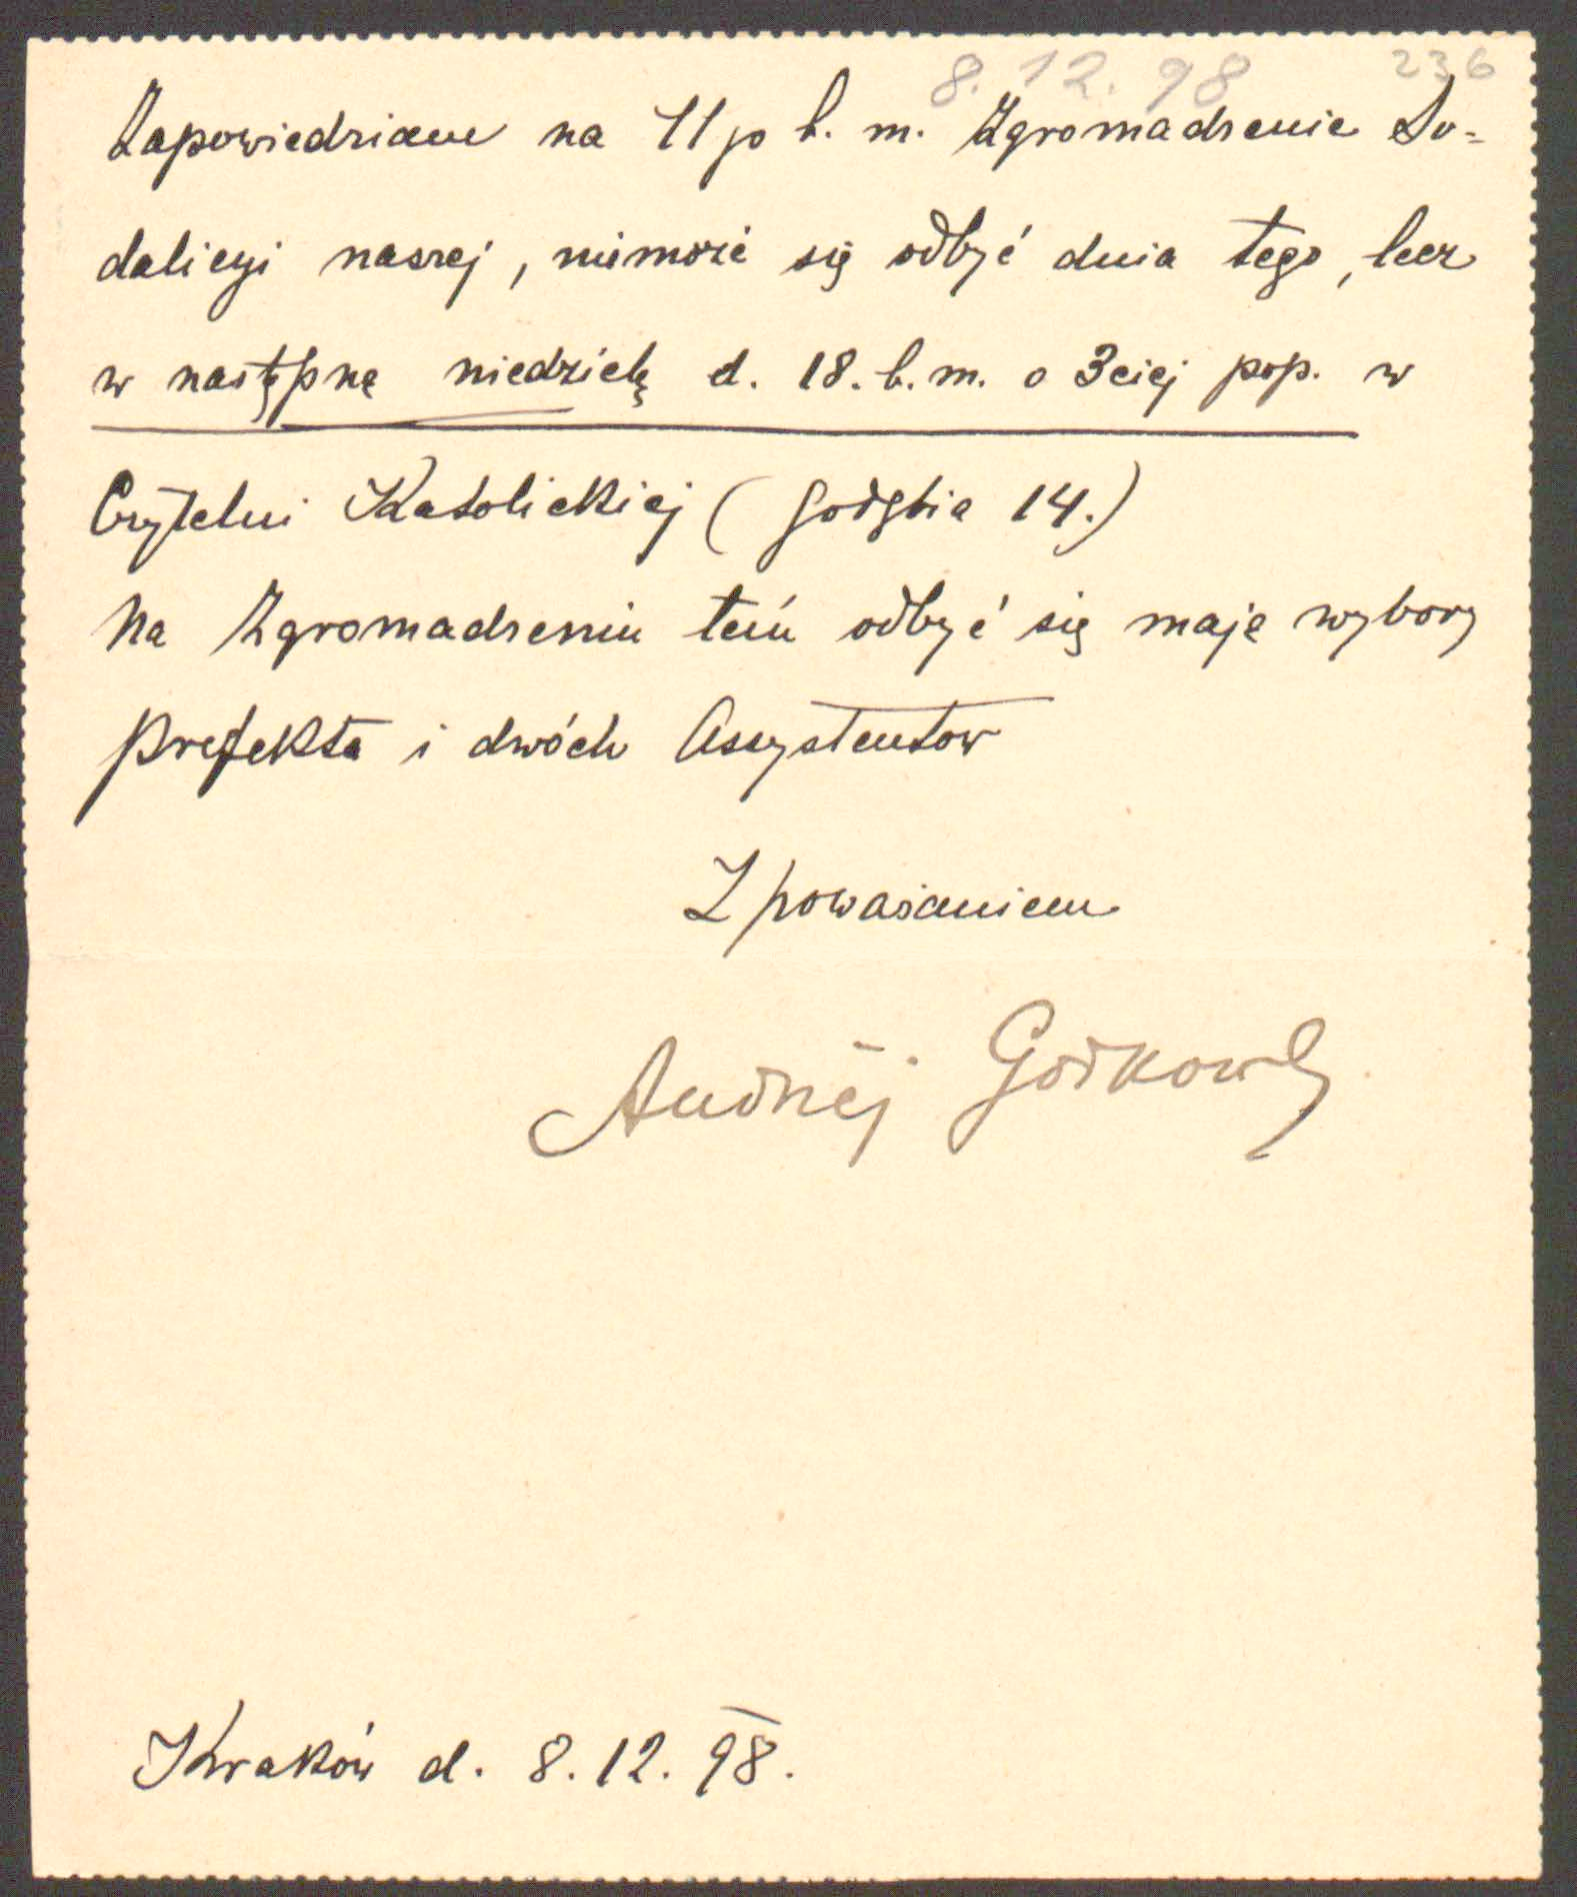 8. 12. 98 236
Zapowiedziane na 11go b. m. Zgromadzenie So=
dalicyi naszej, niemoże się odbyć dnia tego, lecz
w następną niedzielę d. 18. b. m. o 3ciej pop. w
Czytelni Katolickiej (Gołębia 14.)
Na Zgromadzeniu tém odbyć się mają wybory
Prefekta i dwóch Assystentow
Z poważaniem
Andrzej
Kraków d. 8. 12. 98.